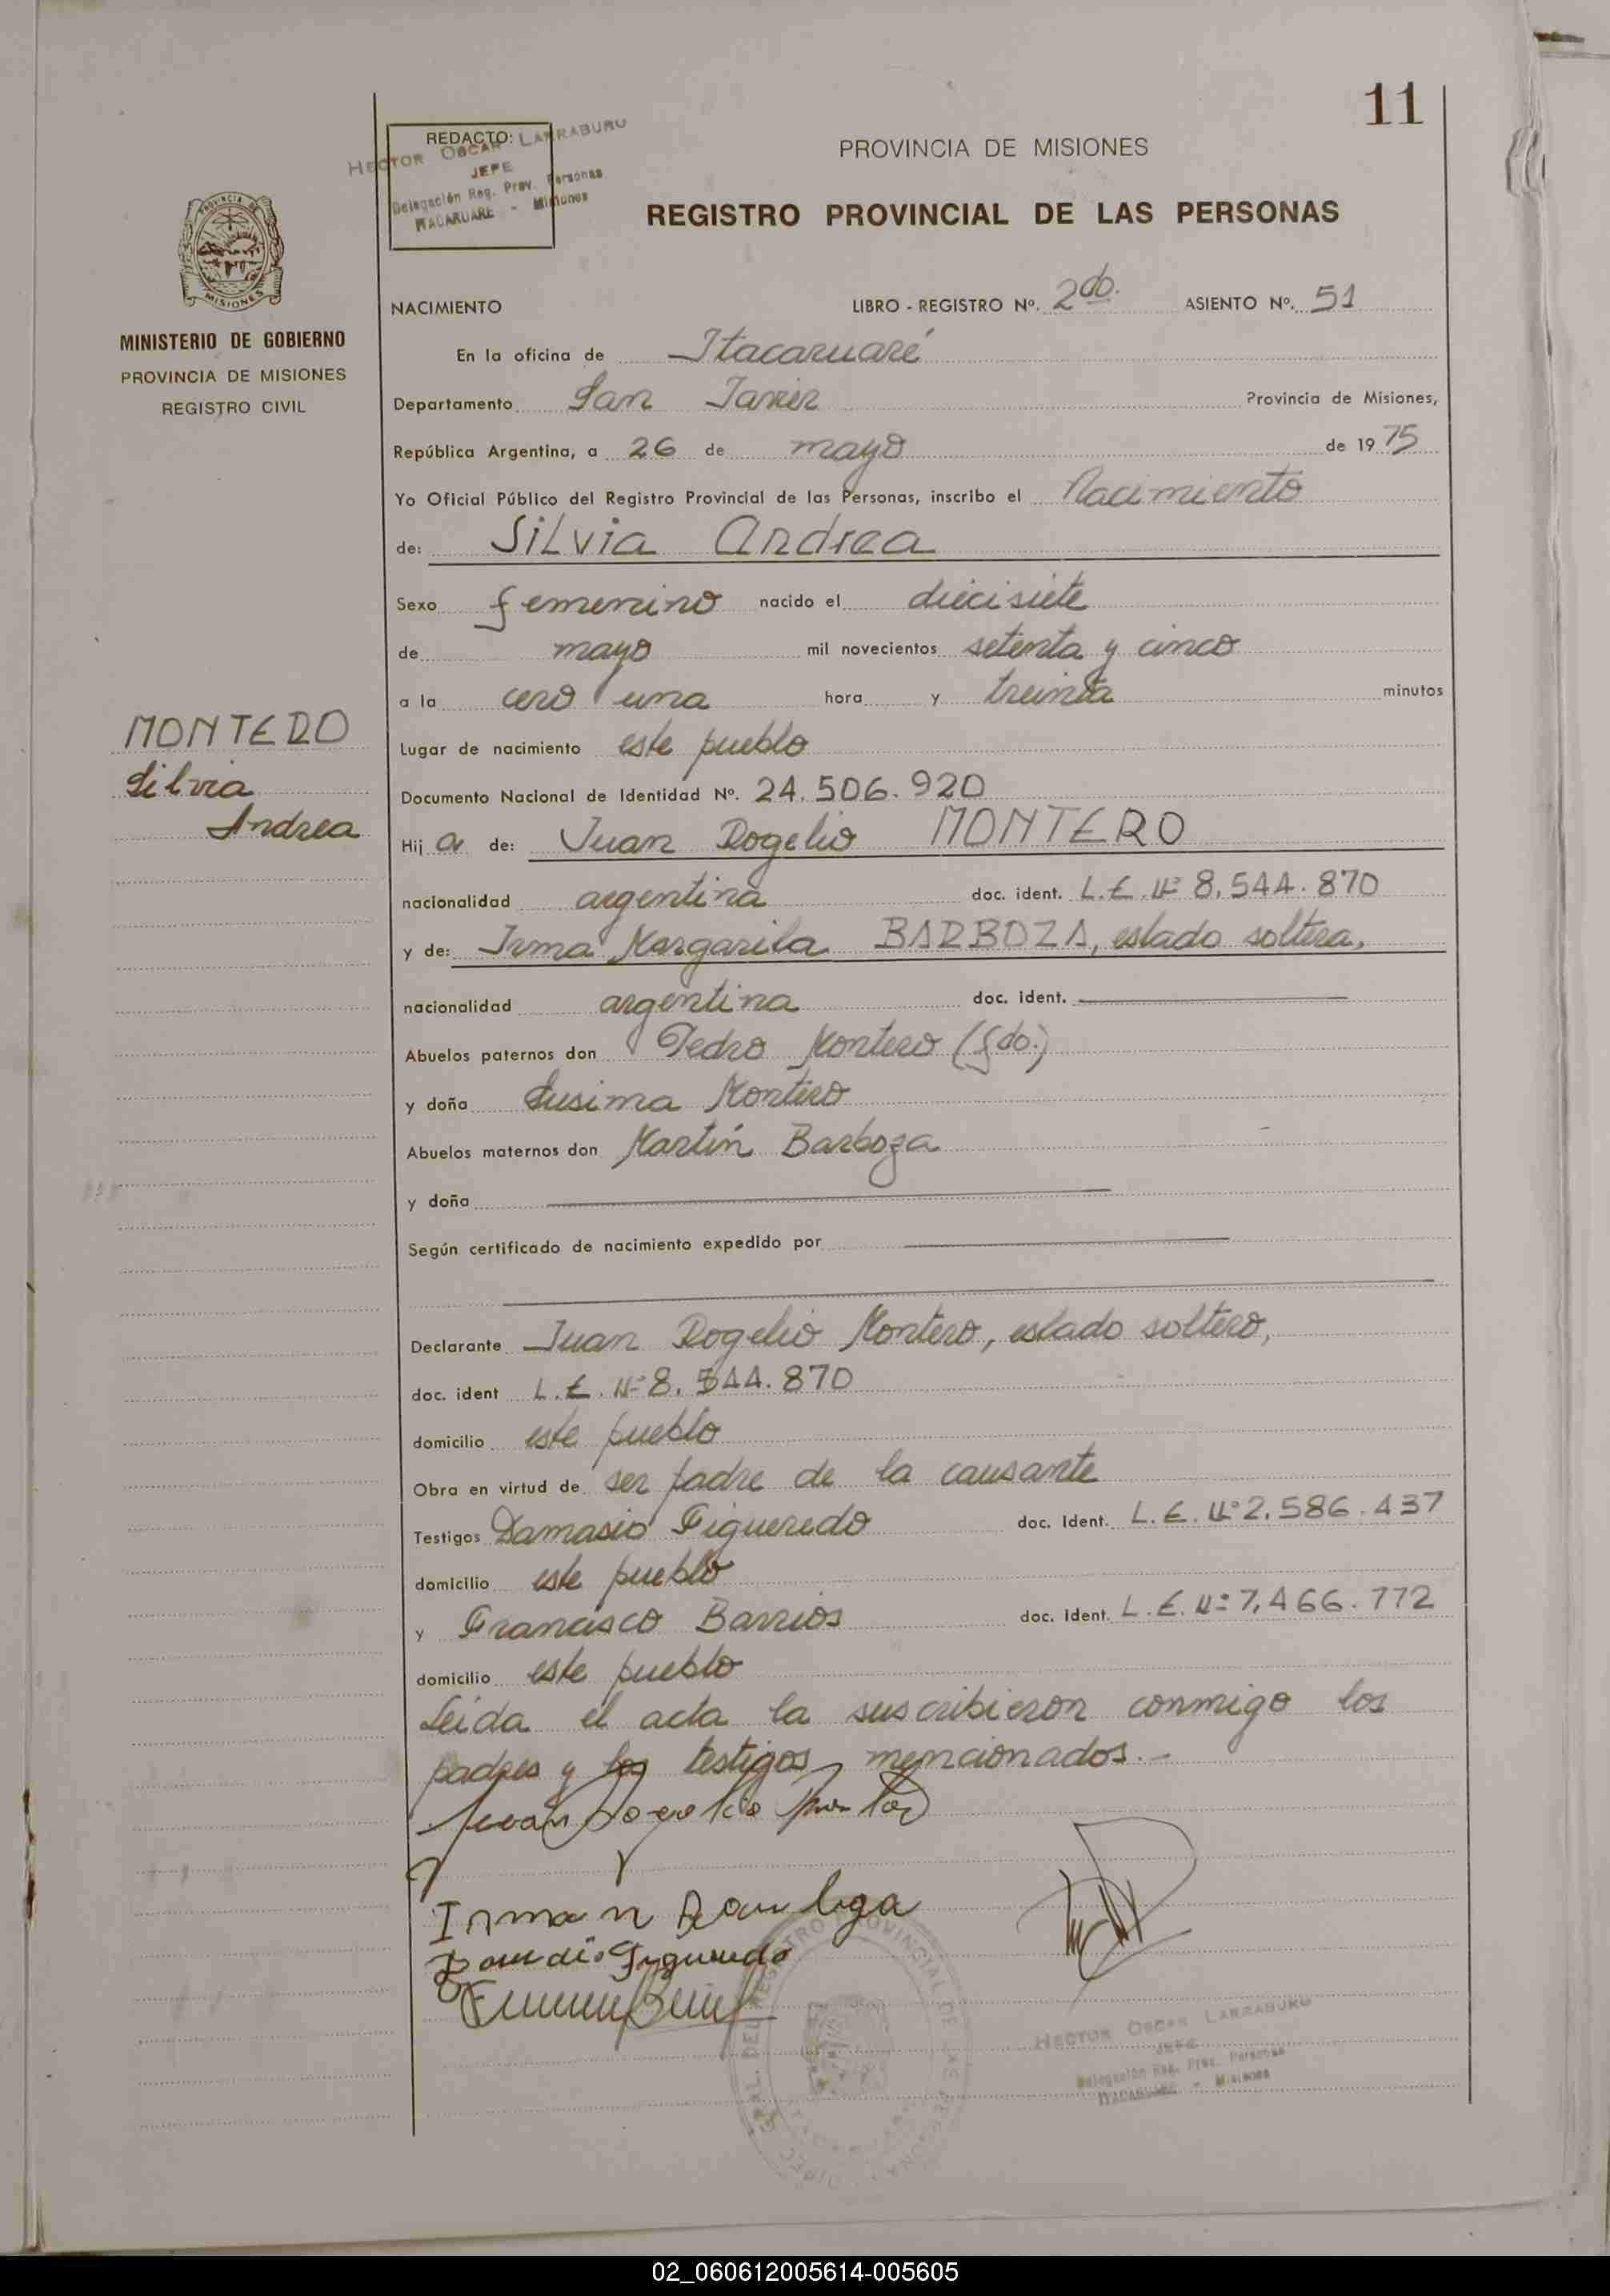 11
REDACTO:
HECTOR OSCAR LARRABURU
JEFE
Delegación Reg. Prov. Personas
ITACARUARE - Misiones
PROVINCIA DE MISIONES
REGISTRO PROVINCIAL DE LAS PERSONAS
PROVINCIA DE
MISIONES
MINISTERIO DE GOBIERNO
PROVINCIA DE MISIONES
REGISTRO CIVIL
NACIMIENTO LIBRO - REGISTRO Nº. 2do. ASIENTO Nº. 51
En la oficina de Itacaruaré
Departamento San Javier Provincia de Misiones,
República Argentina, a 26 de mayo de 1975
Yo Oficial Público del Registro Provincial de las Personas, inscribo el Nacimiento
de: Silvia Andrea
Sexo femenino nacido el diecisiete
de mayo mil novecientos setenta y cinco
a la cero una hora y treinta minutos
MONTERO
Silvia
Andrea
Lugar de nacimiento este pueblo
Documento Nacional de Identidad Nº. 24.506.920
Hija de: Juan Rogelio MONTERO
nacionalidad argentina doc. ident. L.E.Nº 8.544.870
y de: Irma Margarita BARBOZA, estado soltera,
nacionalidad argentina doc. ident.
Abuelos paternos don Pedro Montero (fdo.)
y doña Lusima Montero
Abuelos maternos don Martín Barboza
y doña
Según certificado de nacimiento expedido por
Declarante Juan Rogelio Montero, estado soltero,
doc. ident L.E. Nº 8.544.870
domicilio este pueblo
Obra en virtud de ser padre de la causante
Testigos Damasio Figueredo doc. Ident. L.E. Nº 2.586.437
domicilio este pueblo
y Francisco Barrios doc. Ident. L.E. Nº 7.466.772
domicilio este pueblo
Leída el acta la suscribieron conmigo los
padres y los testigos mencionados.-
HECTOR OSCAR LARRABURU
JEFE
Delegación Reg. Prov. Personas
ITACARUARE - Misiones
02_060612005614-005605